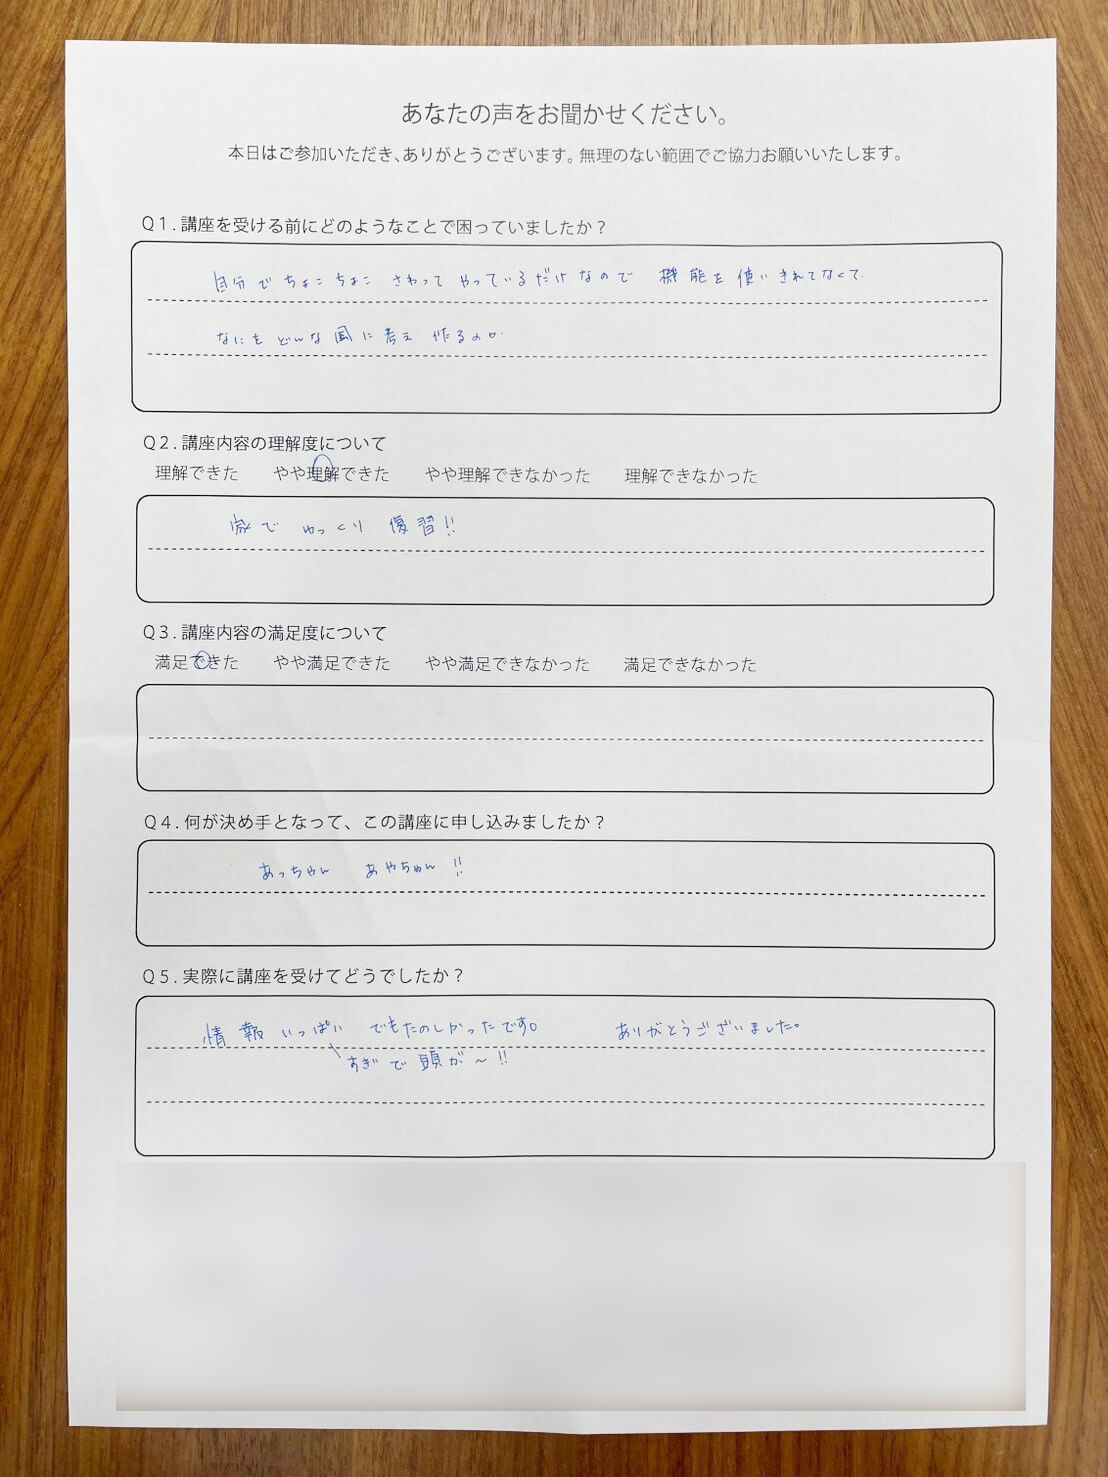 あなたの声をお聞かせください。
本日はご参加いただき、ありがとうございます。無理のない範囲でご協力お願いいたします。
Q1.講座を受ける前にどのようなことで困っていましたか？
自分でちょこちょこ さわって やっているだけなので 機能を使いきれてなくて
なにをどんな風に考え 作るのか
Q2.講座内容の理解度について
理解できた やや理解できた やや理解できなかった 理解できなかった
家で ゆっくり 復習!!
Q3.講座内容の満足度について
満足できた やや満足できた やや満足できなかった 満足できなかった
Q4.何が決め手となって、この講座に申し込みましたか？
あっちゃん あやちゃん !!
Q5.実際に講座を受けてどうでしたか？
情報いっぱい でもたのしかったです。 ありがとうございました。
すぎで頭が〜!!